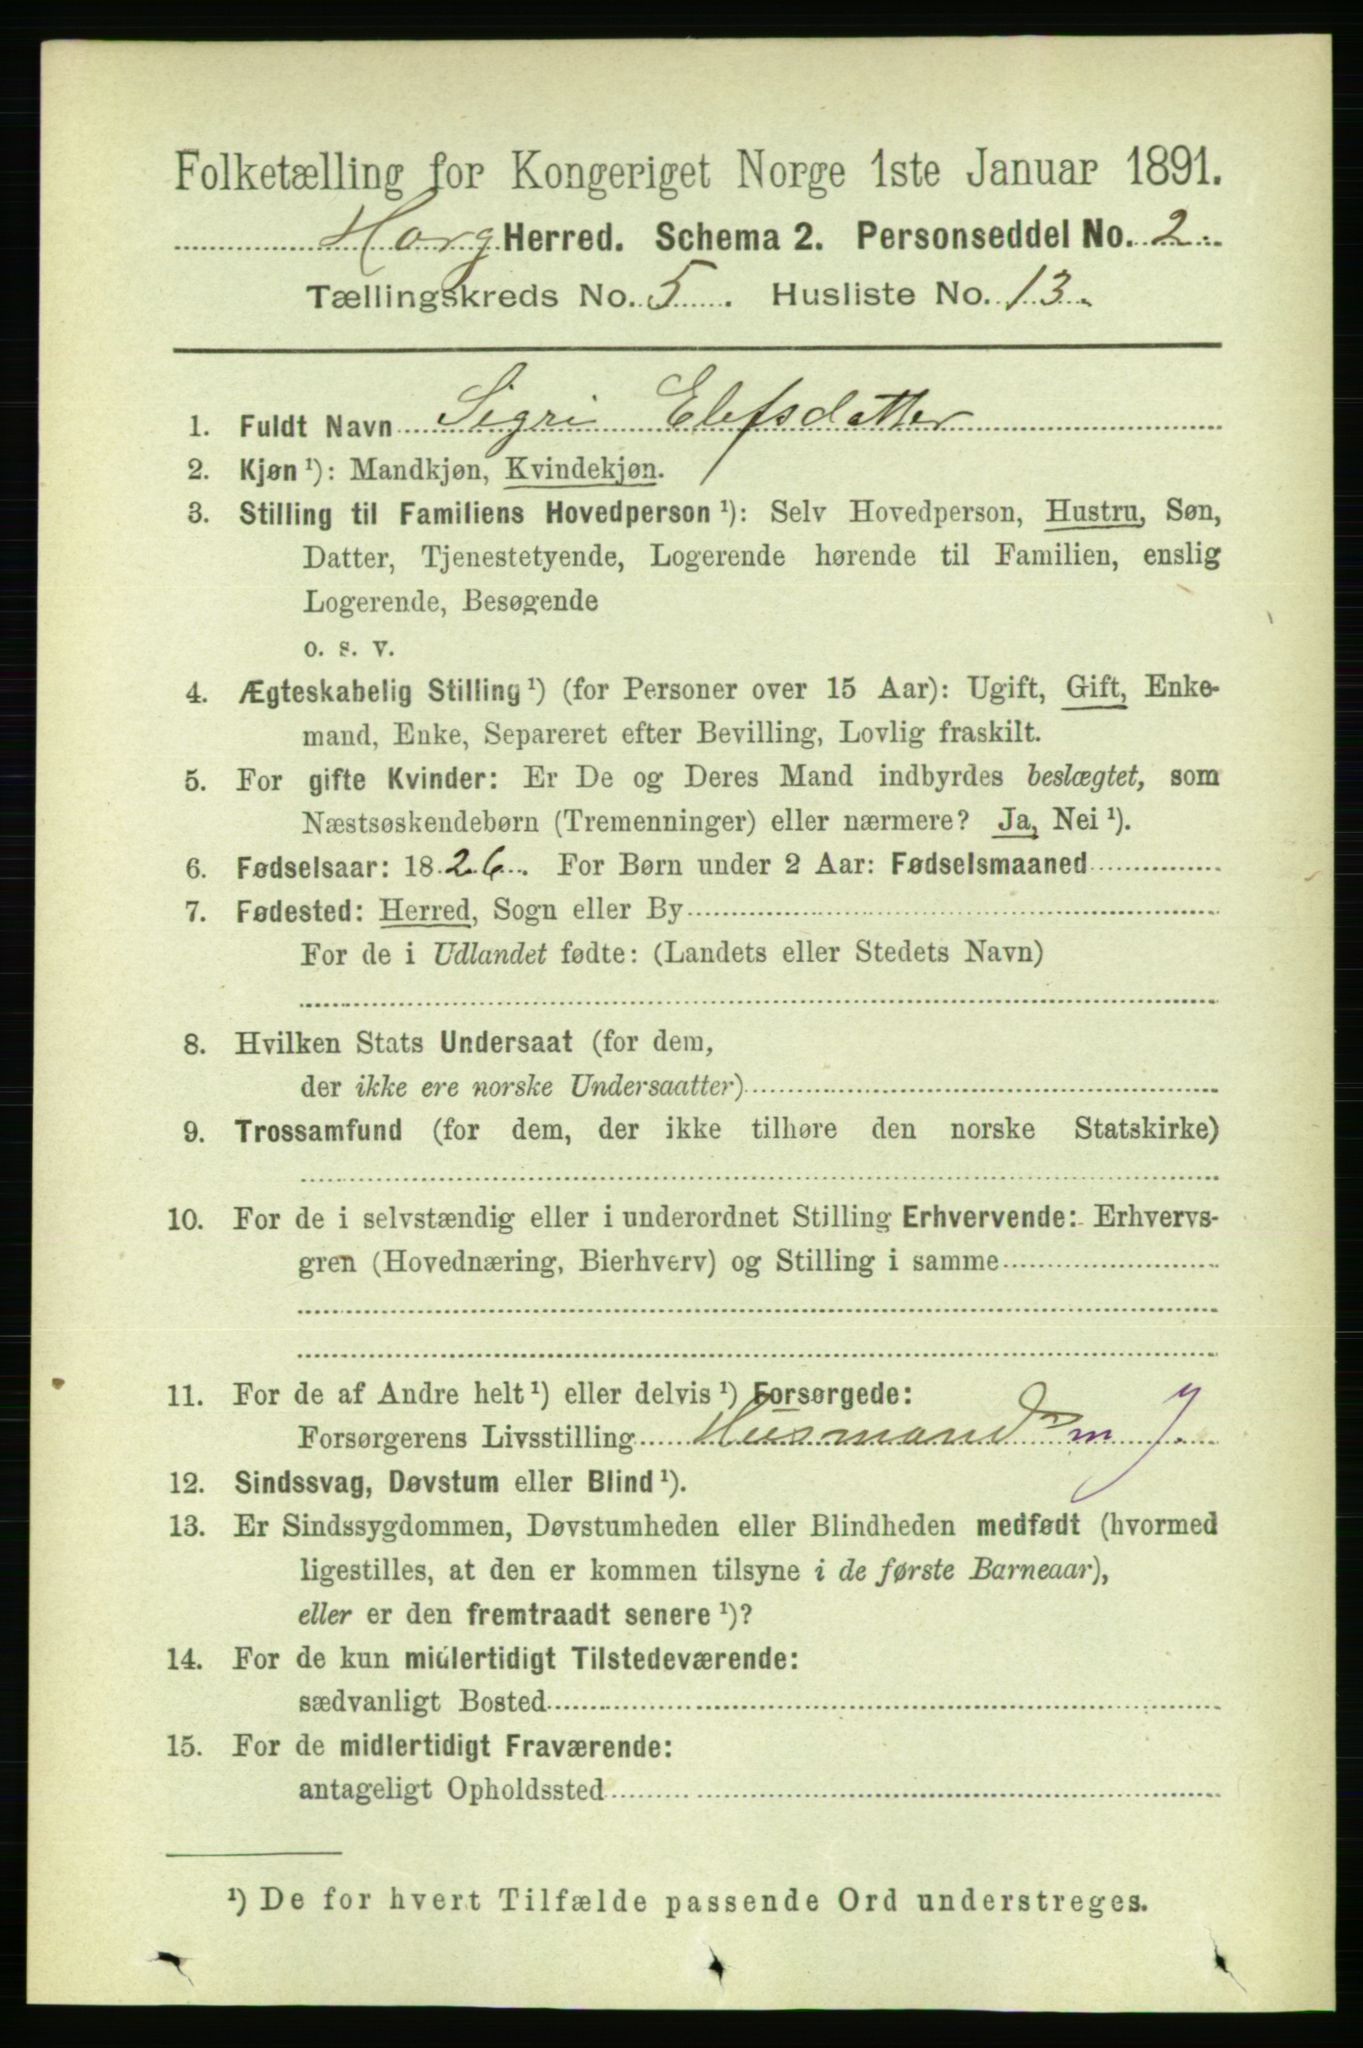 Folketælling for Kongeriget Norge 1ste Januar 1891.
Horg Herred. Schema 2. Personseddel No. 2.
Tællingskreds No. 5. Husliste No. 13.
1. Fuldt Navn Sigri Elefsdatter
2. Kjøn ¹): Mandkjøn, Kvindekjøn.
3. Stilling til Familiens Hovedperson ¹): Selv Hovedperson, Hustru, Søn,
Datter, Tjenestetyende, Logerende hørende til Familien, enslig
Logerende, Besøgende
o. s. v.
4. Ægteskabelig Stilling ¹) (for Personer over 15 Aar): Ugift, Gift, Enke-
mand, Enke, Separeret efter Bevilling, Lovlig fraskilt.
5. For gifte Kvinder: Er De og Deres Mand indbyrdes beslægtet, som
Næstsøskendebørn (Tremenninger) eller nærmere? Ja, Nei ¹).
6. Fødselsaar: 1826. For Børn under 2 Aar: Fødselsmaaned
7. Fødested: Herred, Sogn eller By
For de i Udlandet fødte: (Landets eller Stedets Navn)
8. Hvilken Stats Undersaat (for dem,
der ikke ere norske Undersaatter)
9. Trossamfund (for dem, der ikke tilhøre den norske Statskirke)
10. For de i selvstændig eller i underordnet Stilling Erhvervende: Erhvervs-
gren (Hovednæring, Bierhverv) og Stilling i samme
11. For de af Andre helt ¹) eller delvis ¹) Forsørgede:
Forsørgerens Livsstilling Husmand m J.
12. Sindssvag, Døvstum eller Blind ¹).
13. Er Sindssygdommen, Døvstumheden eller Blindheden medfødt (hvormed
ligestilles, at den er kommen tilsyne i de første Barneaar),
eller er den fremtraadt senere ¹)?
14. For de kun midlertidigt Tilstedeværende:
sædvanligt Bosted
15. For de midlertidigt Fraværende:
antageligt Opholdssted
¹) De for hvert Tilfælde passende Ord understreges.